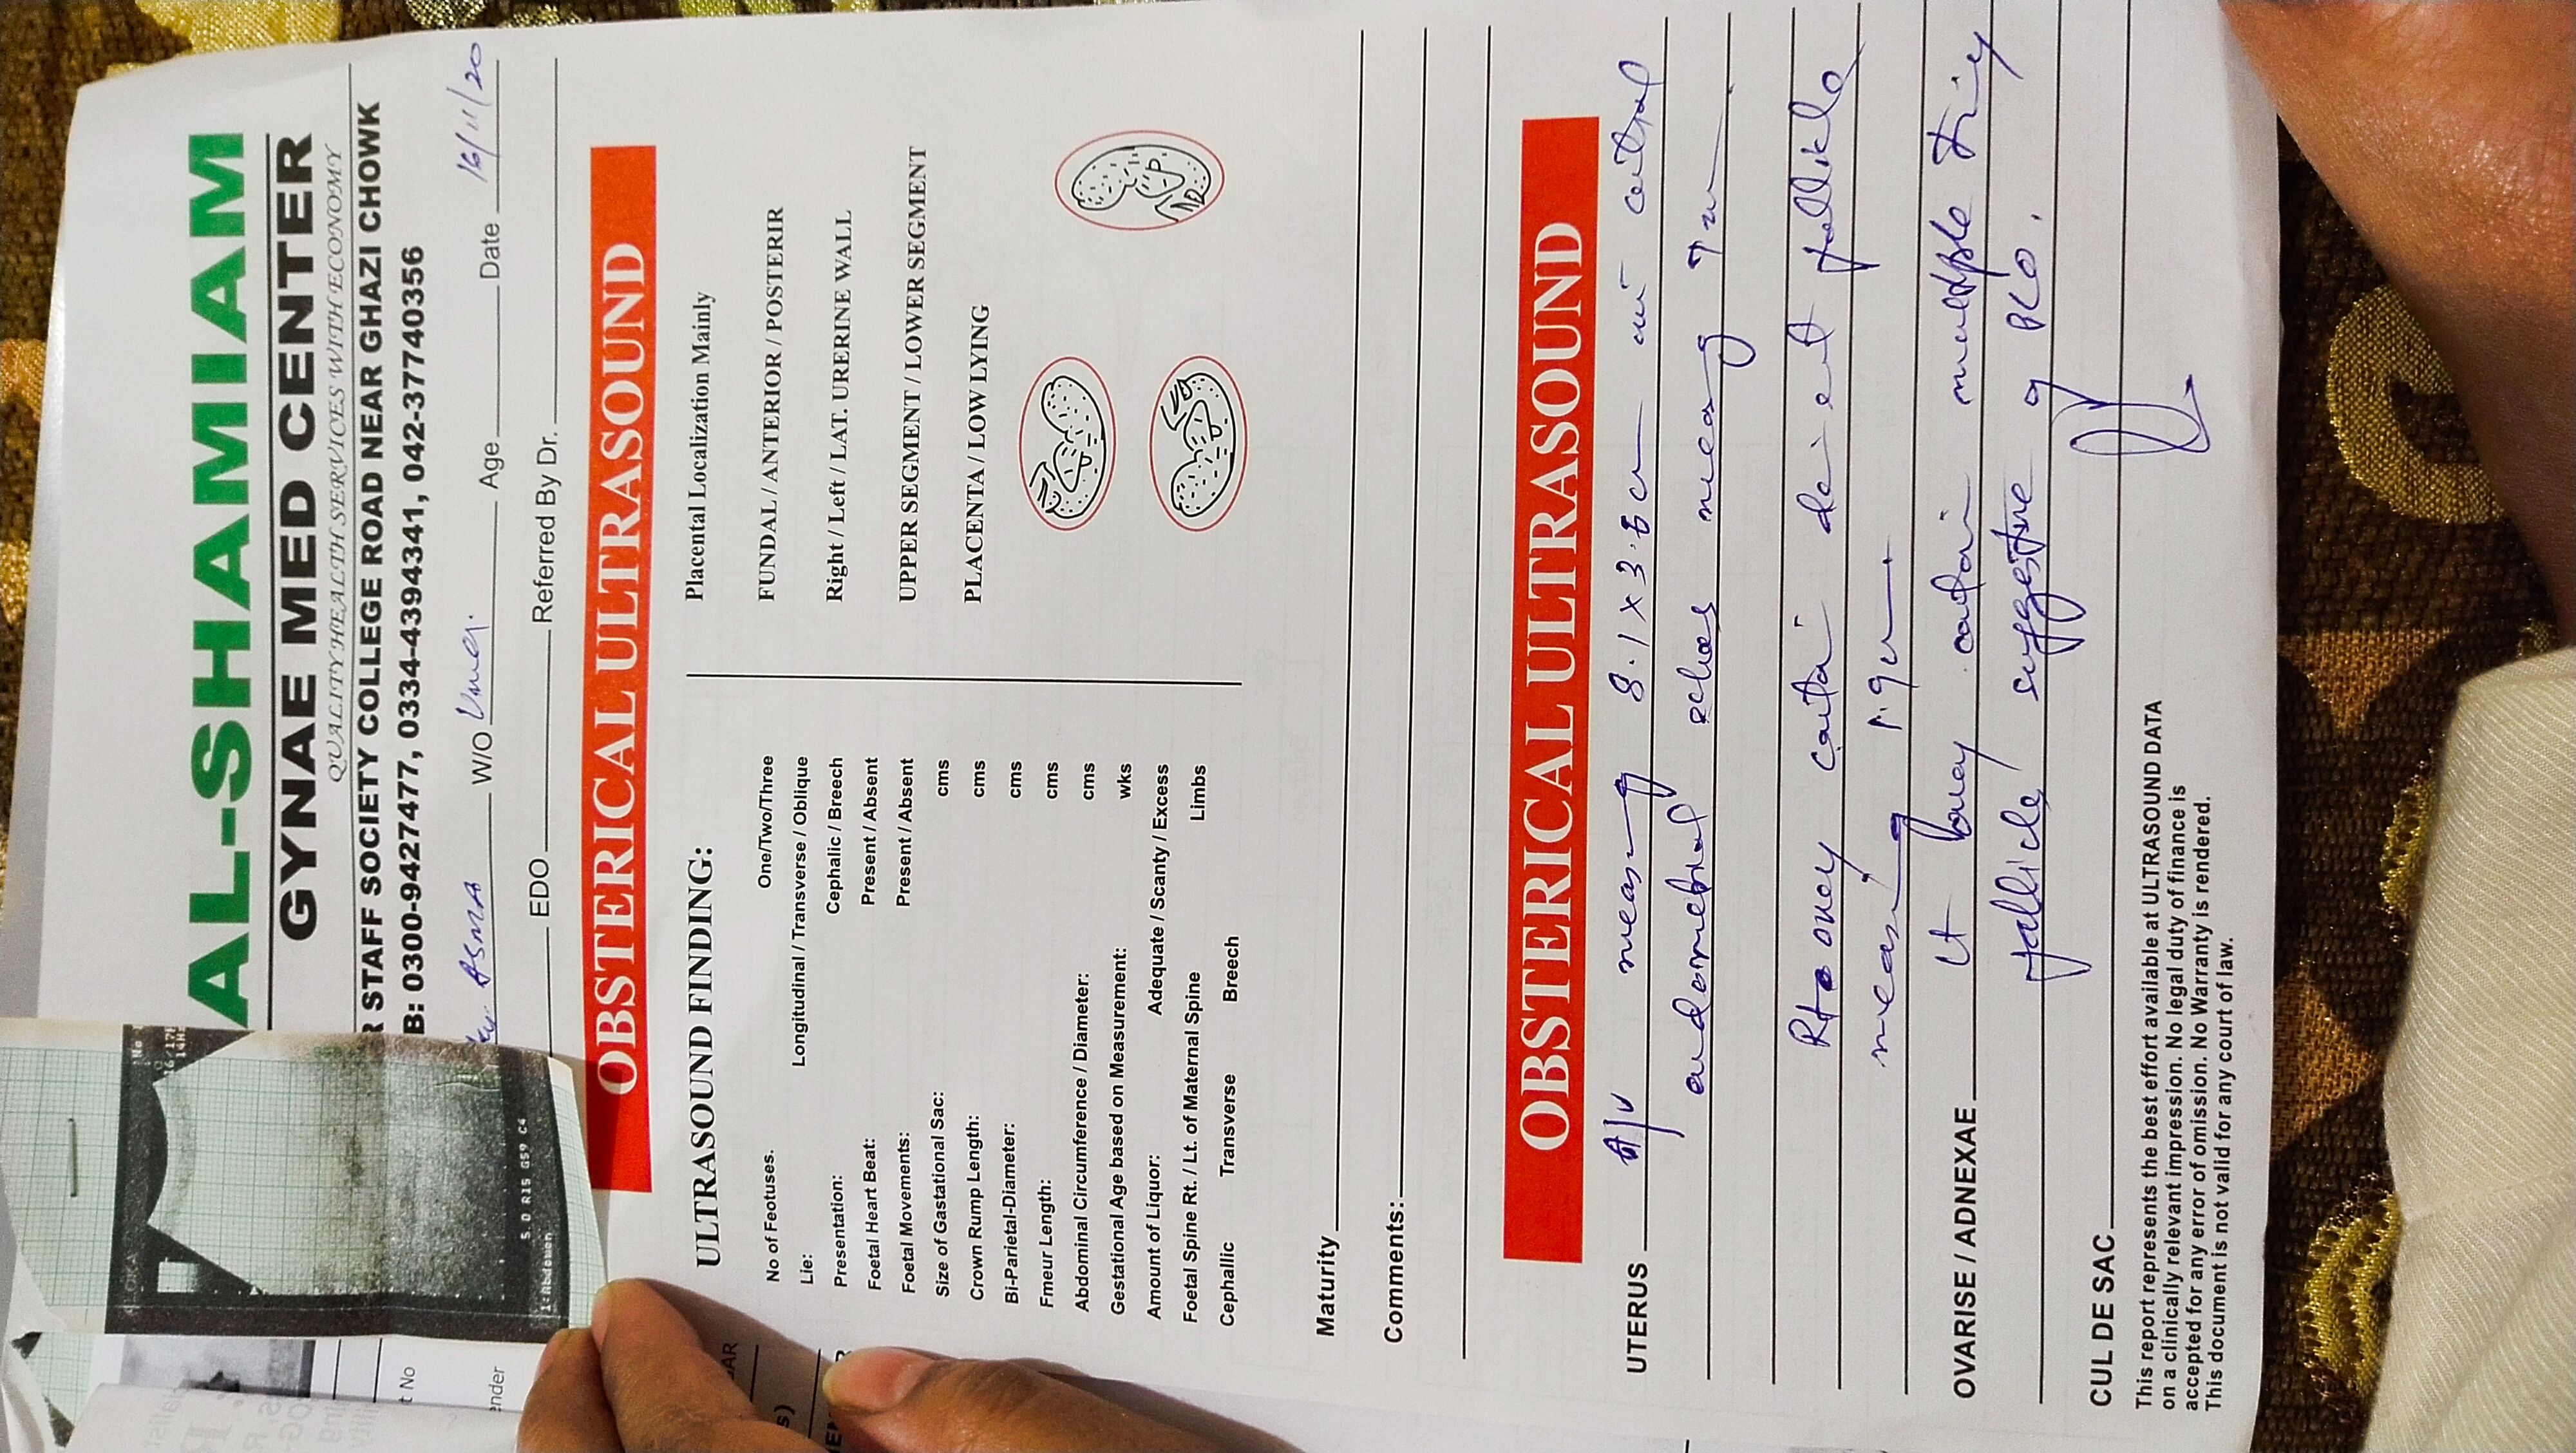 AL-SHAMIAM
GYNAE MED CENTER
QUALITY HEALTH SERVICES WITH ECONOMY
R STAFF SOCIETY COLLEGE ROAD NEAR GHAZI CHOWK
B: 0300-9427477, 0334-4394341, 042-37740356
ASMA W/O Umer. Age Date 16/11/20
EDO Referred By Dr.
OBSTERICAL ULTRASOUND
ULTRASOUND FINDING:
No of Feotuses. One/Two/Three
Lie: Longitudinal / Transverse / Oblique
Presentation: Cephalic / Breech
Foetal Heart Beat: Present / Absent
Foetal Movements: Present / Absent
Size of Gastational Sac: cms
Crown Rump Length: cms
Bi-Parietal-Diameter: cms
Fmeur Length: cms
Abdominal Circumference / Diameter: cms
Gestational Age based on Measurement: wks
Amount of Liquor: Adequate / Scanty / Excess
Foetal Spine Rt. / Lt. of Maternal Spine Limbs
Cephallic Transverse Breech
Placental Localization Mainly
FUNDAL / ANTERIOR / POSTERIR
Right / Left / LAT. URERINE WALL
UPPER SEGMENT / LOWER SEGMENT
PLACENTA / LOW LYING
Maturity
Comments:
OBSTERICAL ULTRASOUND
UTERUS A/V measing 8.1 x 3.6 cm central
endometrial echoes measing
Rt ovary contain follicle
measing 1.9 cm
OVARISE / ADNEXAE Lt ovary contain multiple tiny
follicle suggestive of PCO.
CUL DE SAC
This report represents the best effort available at ULTRASOUND DATA
on a clinically relevant impression. No legal duty of finance is
accepted for any error of omission. No Warranty is rendered.
This document is not valid for any court of law.
ALOKA
1:Abdomen
S 0 R15 G59 C4
t No
ender